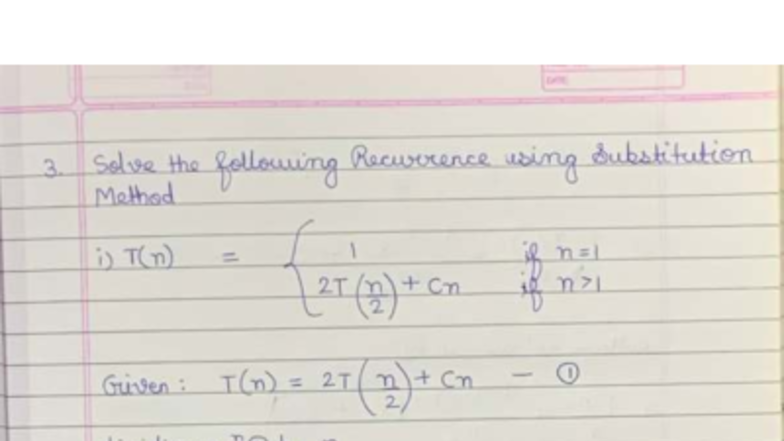 DATE
3. Solve the following Recurrence using Substitution
Method
i) T(n) = { 1 if n=1
2T(n/2) + Cn if n>1
Given : T(n) = 2T(n/2) + Cn — ①